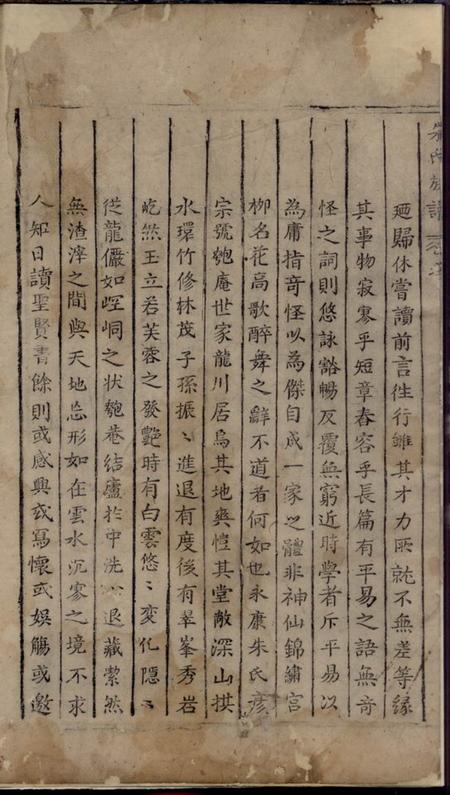 朱氏族譜
廼歸休嘗讀前言往行雖其才力所就不無差等緣
其事物寂寥乎短章舂容乎長篇有平易之語無奇
怪之詞則悠詠豁暢反覆無窮近時學者斥平易以
為庸指奇怪以為傑自成一家之體非神仙錦繡宫
柳名花高歌醉舞之辭不道者何如也永康朱氏彦
宗號匏庵世家龍川居焉其地爽愷其堂敞深山拱
水環竹修林茂子孫振〻進退有度後有翠峯秀岩
屹然玉立若芙蓉之發艷時有白雲悠〻變化隱〻
從龍儼如崆峒之状匏菴結廬扵中洗心退藏潔然
無渣滓之間與天地忘形如在雲水沉寥之境不求
人知日讀聖賢書餘則或感興或寫懷或娯觴或邀